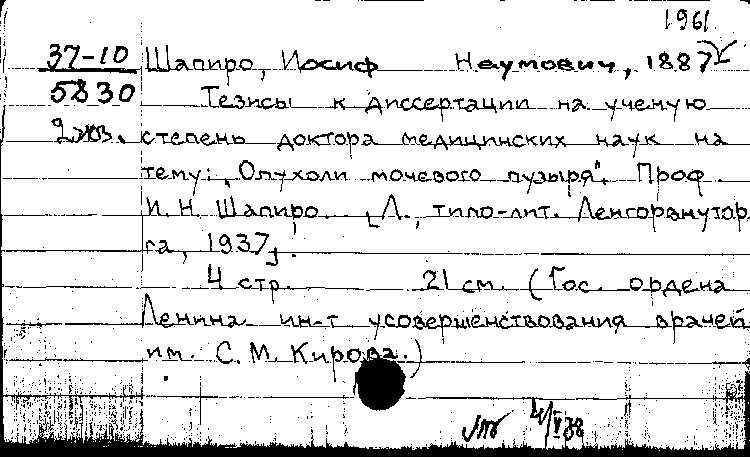 1961
37-10 Шапиро, Иосиф Наумович, 1887
5830 Тезисы к диссертации на ученую
2 экз. степень доктора медицинских наук на
тему: „Опухоли мочевого пузыря". Проф.
И. Н. Шапиро. [Л., типо-лит. Ленгорвнуторга,
га, 1937].
4 стр. 21 см. (Гос. ордена
Ленина ин-т усовершенствования врачей
им. С. М. Кирова.)